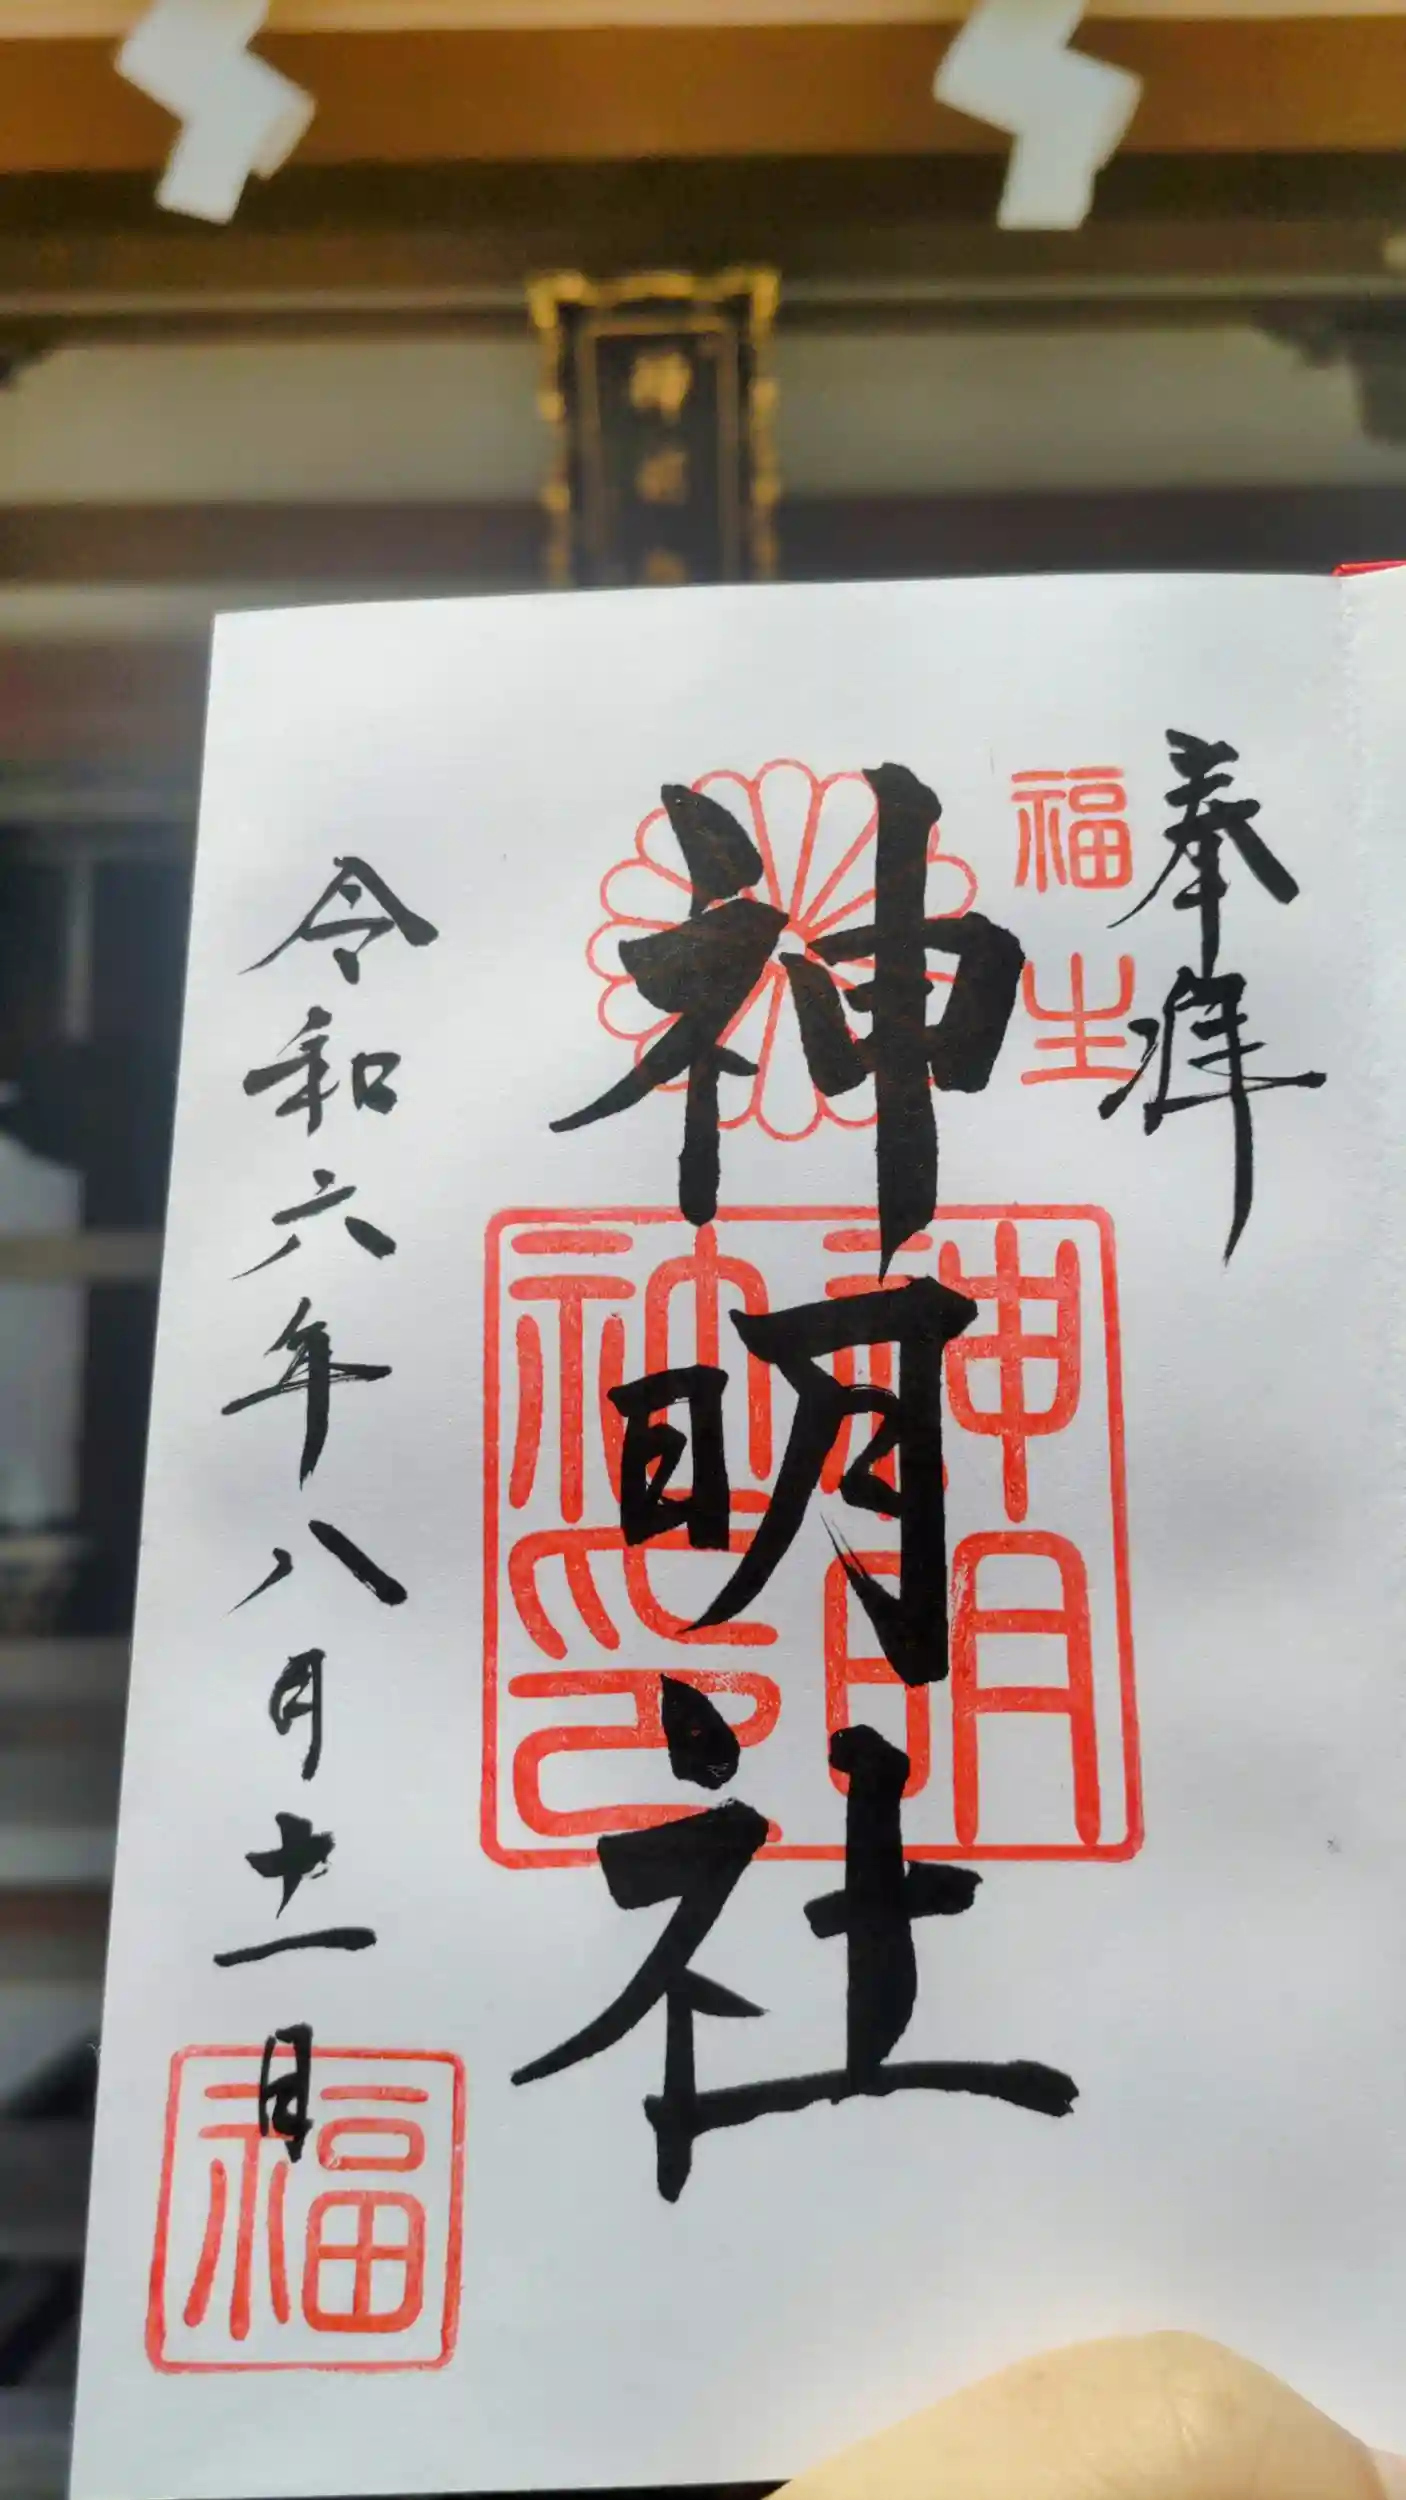 奉拝
福生
神明社
神明
社印
令和六年八月十一日
福